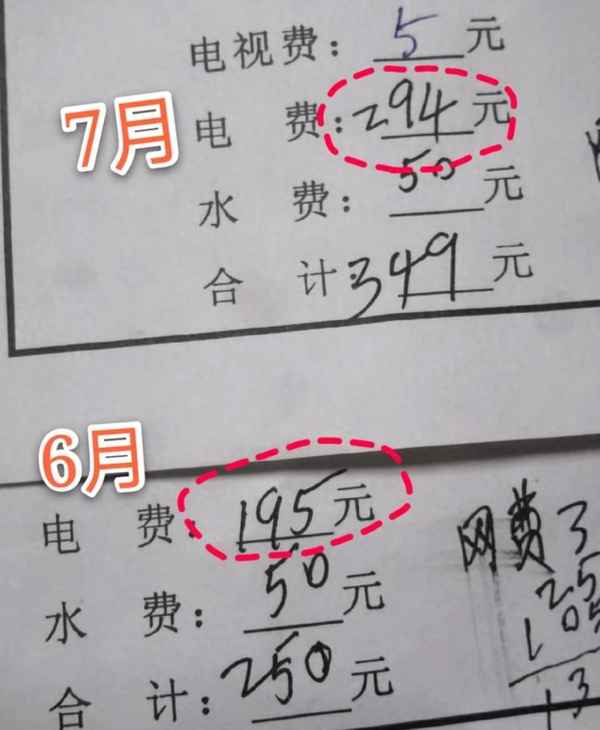 电视费：5元
7月
电 费：294元
水 费：50元
合 计：349元
6月
电 费：195元
水 费：50元
合 计：250元
网费3
25
105
13